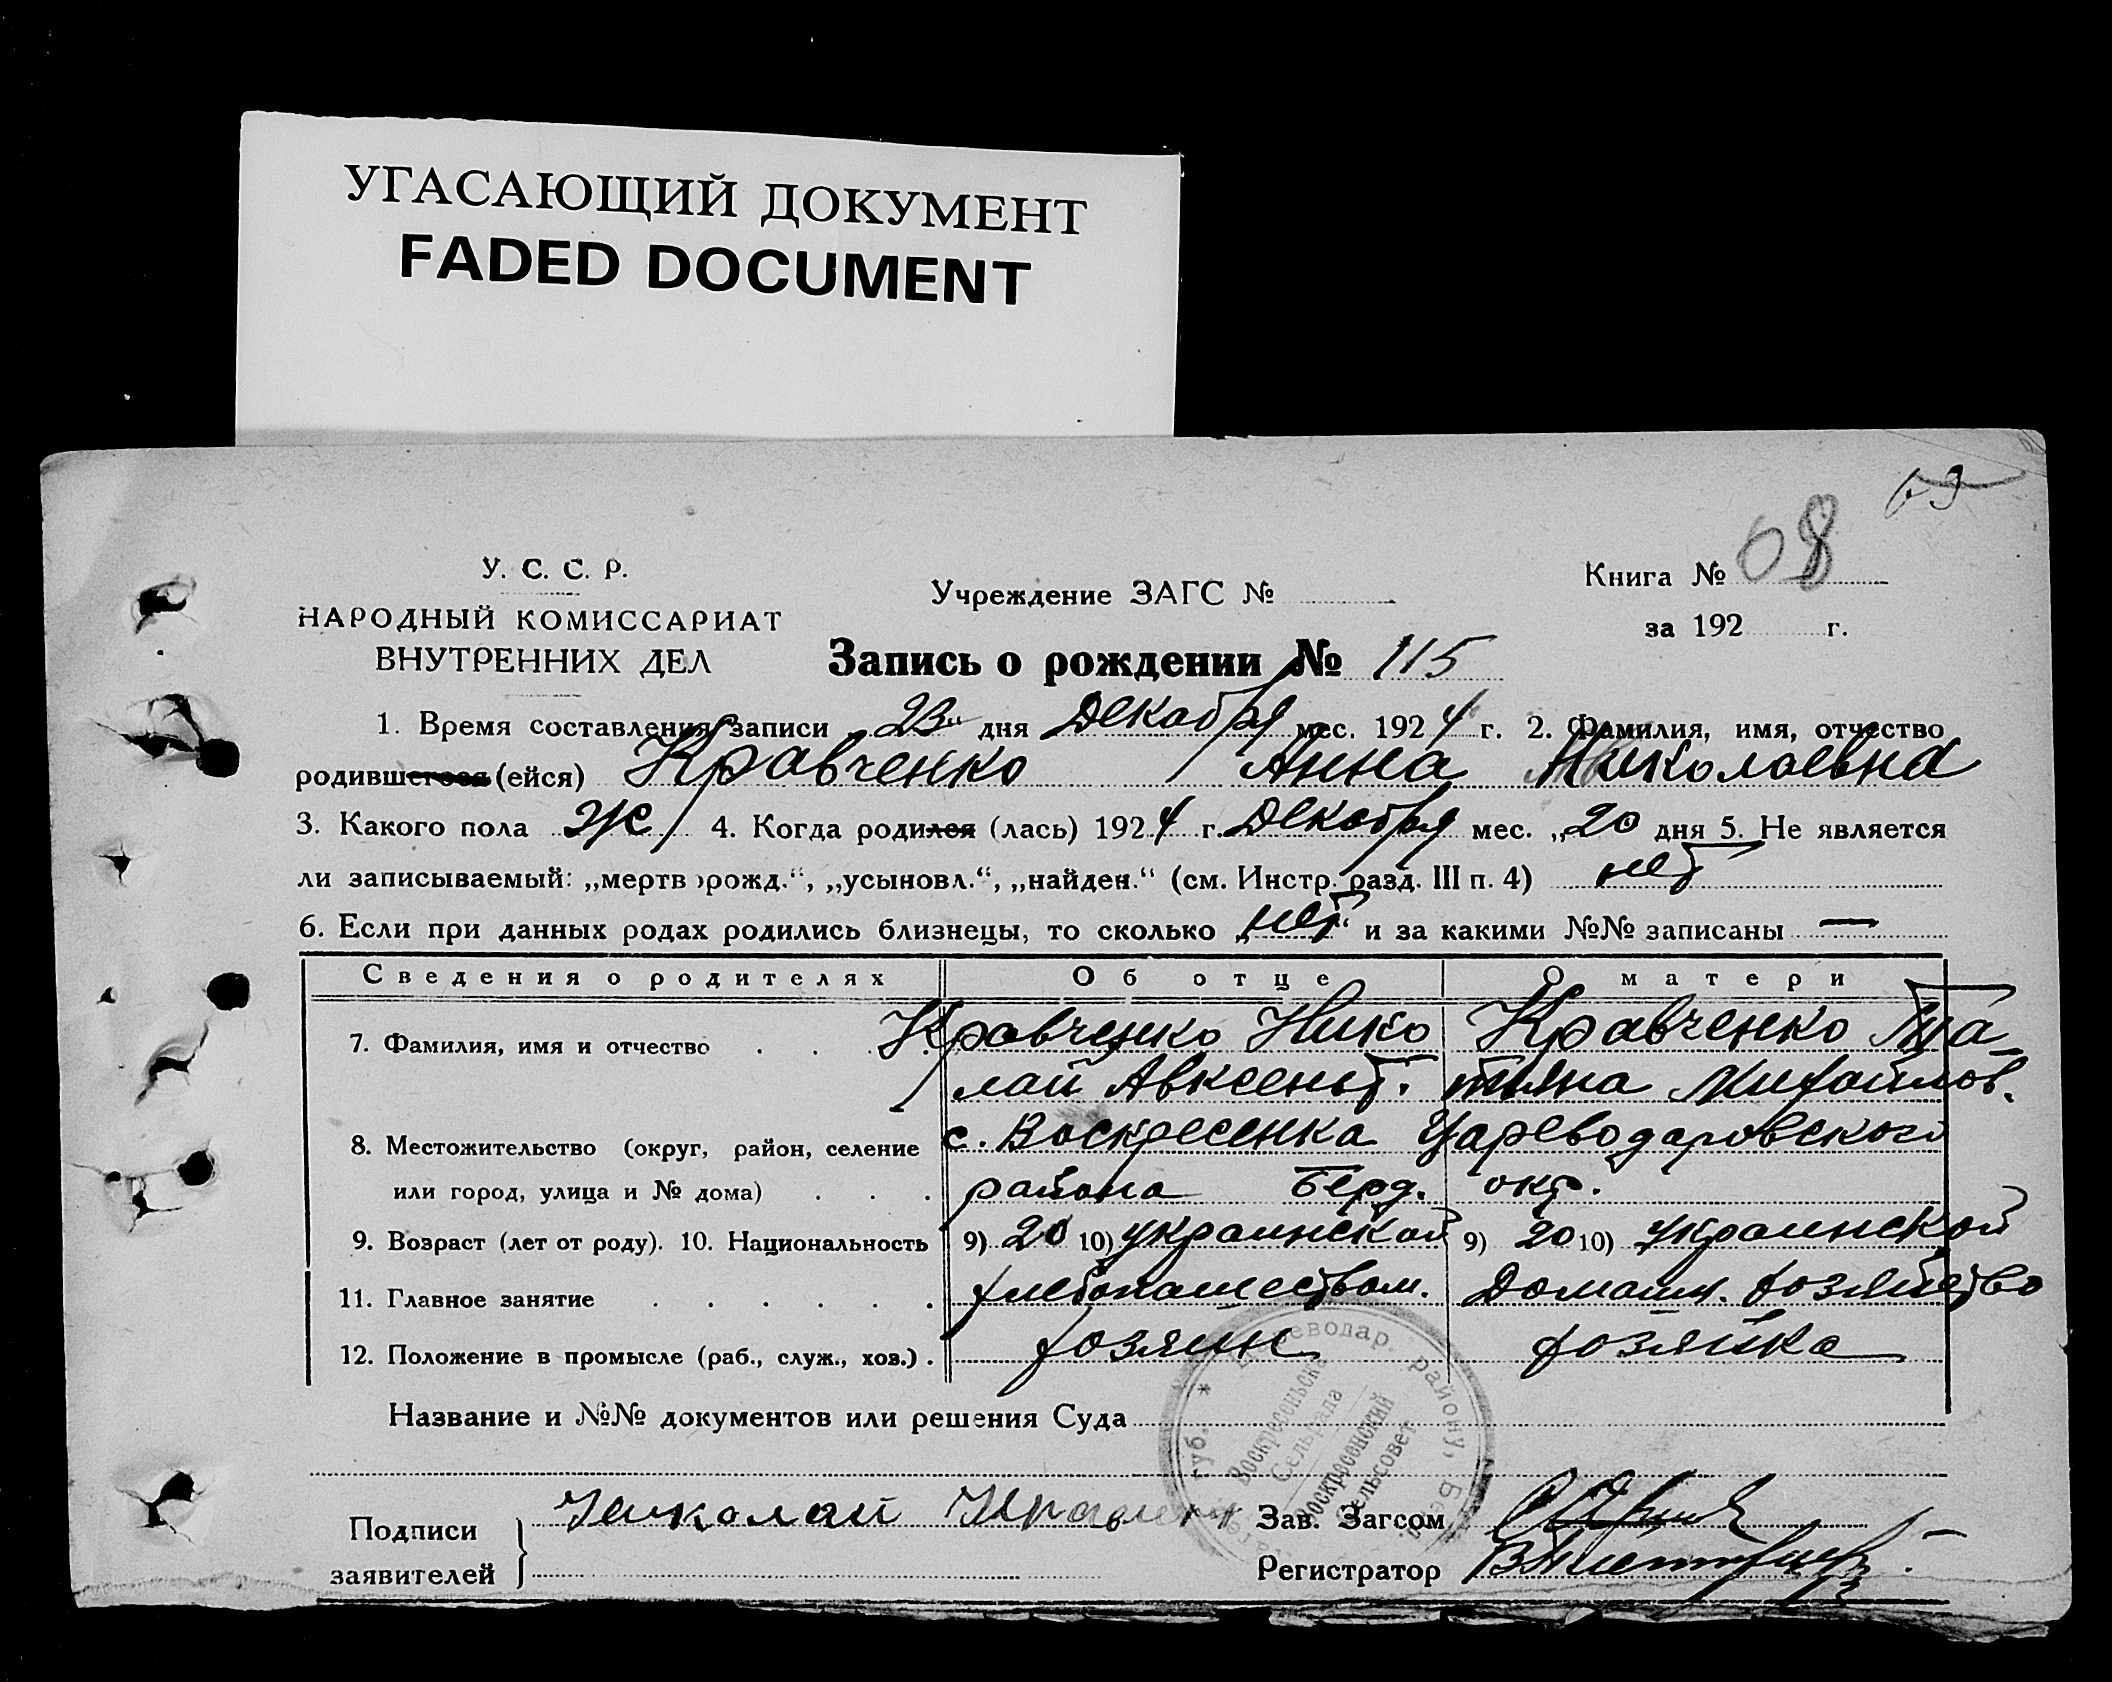 УГАСАЮЩИЙ ДОКУМЕНТ
FADED DOCUMENT
69
У. С. С. Р.
НАРОДНЫЙ КОМИССАРИАТ
ВНУТРЕННИХ ДЕЛ
Учреждение ЗАГС №
Книга № 68
за 192 г.
Запись о рождении № 115
1. Время составления записи 23 дня Декабря мес. 1924 г. 2. Фамилия, имя, отчество
родившегося (ейся) Кравченко Анна Николаевна
3. Какого пола ж 4. Когда родился (лась) 1924 г. Декабря мес. „20 дня 5. Не является
ли записываемый: „мертворожд.“, „усыновл.“, „найден.“ (см. Инстр. разд. III п. 4) нет
6. Если при данных родах родились близнецы, то сколько „нет“ и за какими №№ записаны —
Сведения о родителях Об отце О матери
7. Фамилия, имя и отчество . . . Кравченко Нико Кравченко Та-
лай Авксеньт. тьяна Михайлов.
8. Местожительство (округ, район, селение с. Воскресенка Цареводаровского
или город, улица и № дома) . . . района Берд. окр.
9. Возраст (лет от роду). 10. Национальность 9) 20 10) украинской 9) 20 10) украинской
11. Главное занятие . . . . . . хлебопашеством. Домашн. хозяйство
12. Положение в промысле (раб., служ., хоз.) . хозяин хозяйка
Название и №№ документов или решения Суда
Воскресенська Сельрада
Воскресенский Сельсовет
еводар. району, Бе
губ. *
Подписи заявителей } Николай Кравченк
Зав. Загсом
Регистратор